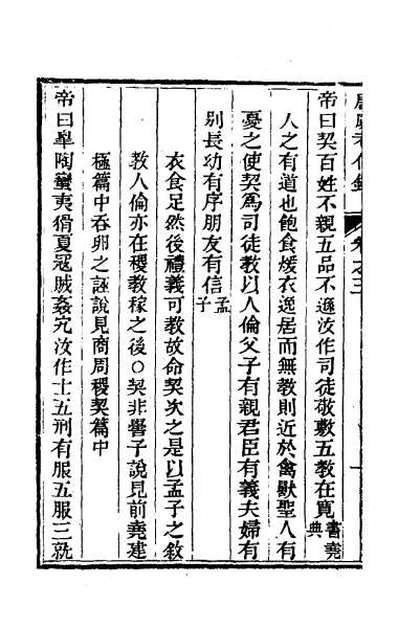 唐虞考信錄 卷之三
帝曰契百姓不親五品不遜汝作司徒敬敷五教在寬書堯典
人之有道也飽食煖衣逸居而無教則近於禽獸聖人有
憂之使契爲司徒教以人倫父子有親君臣有義夫婦有
别長幼有序朋友有信孟子
衣食足然後禮義可教故命契次之是以孟子之敘
教人倫亦在稷教稼之後○契非嚳子說見前堯建
極篇中吞卵之誣說見商周稷契篇中
帝曰臯陶蠻夷猾夏寇賊姦宄汝作士五刑有服五服三就